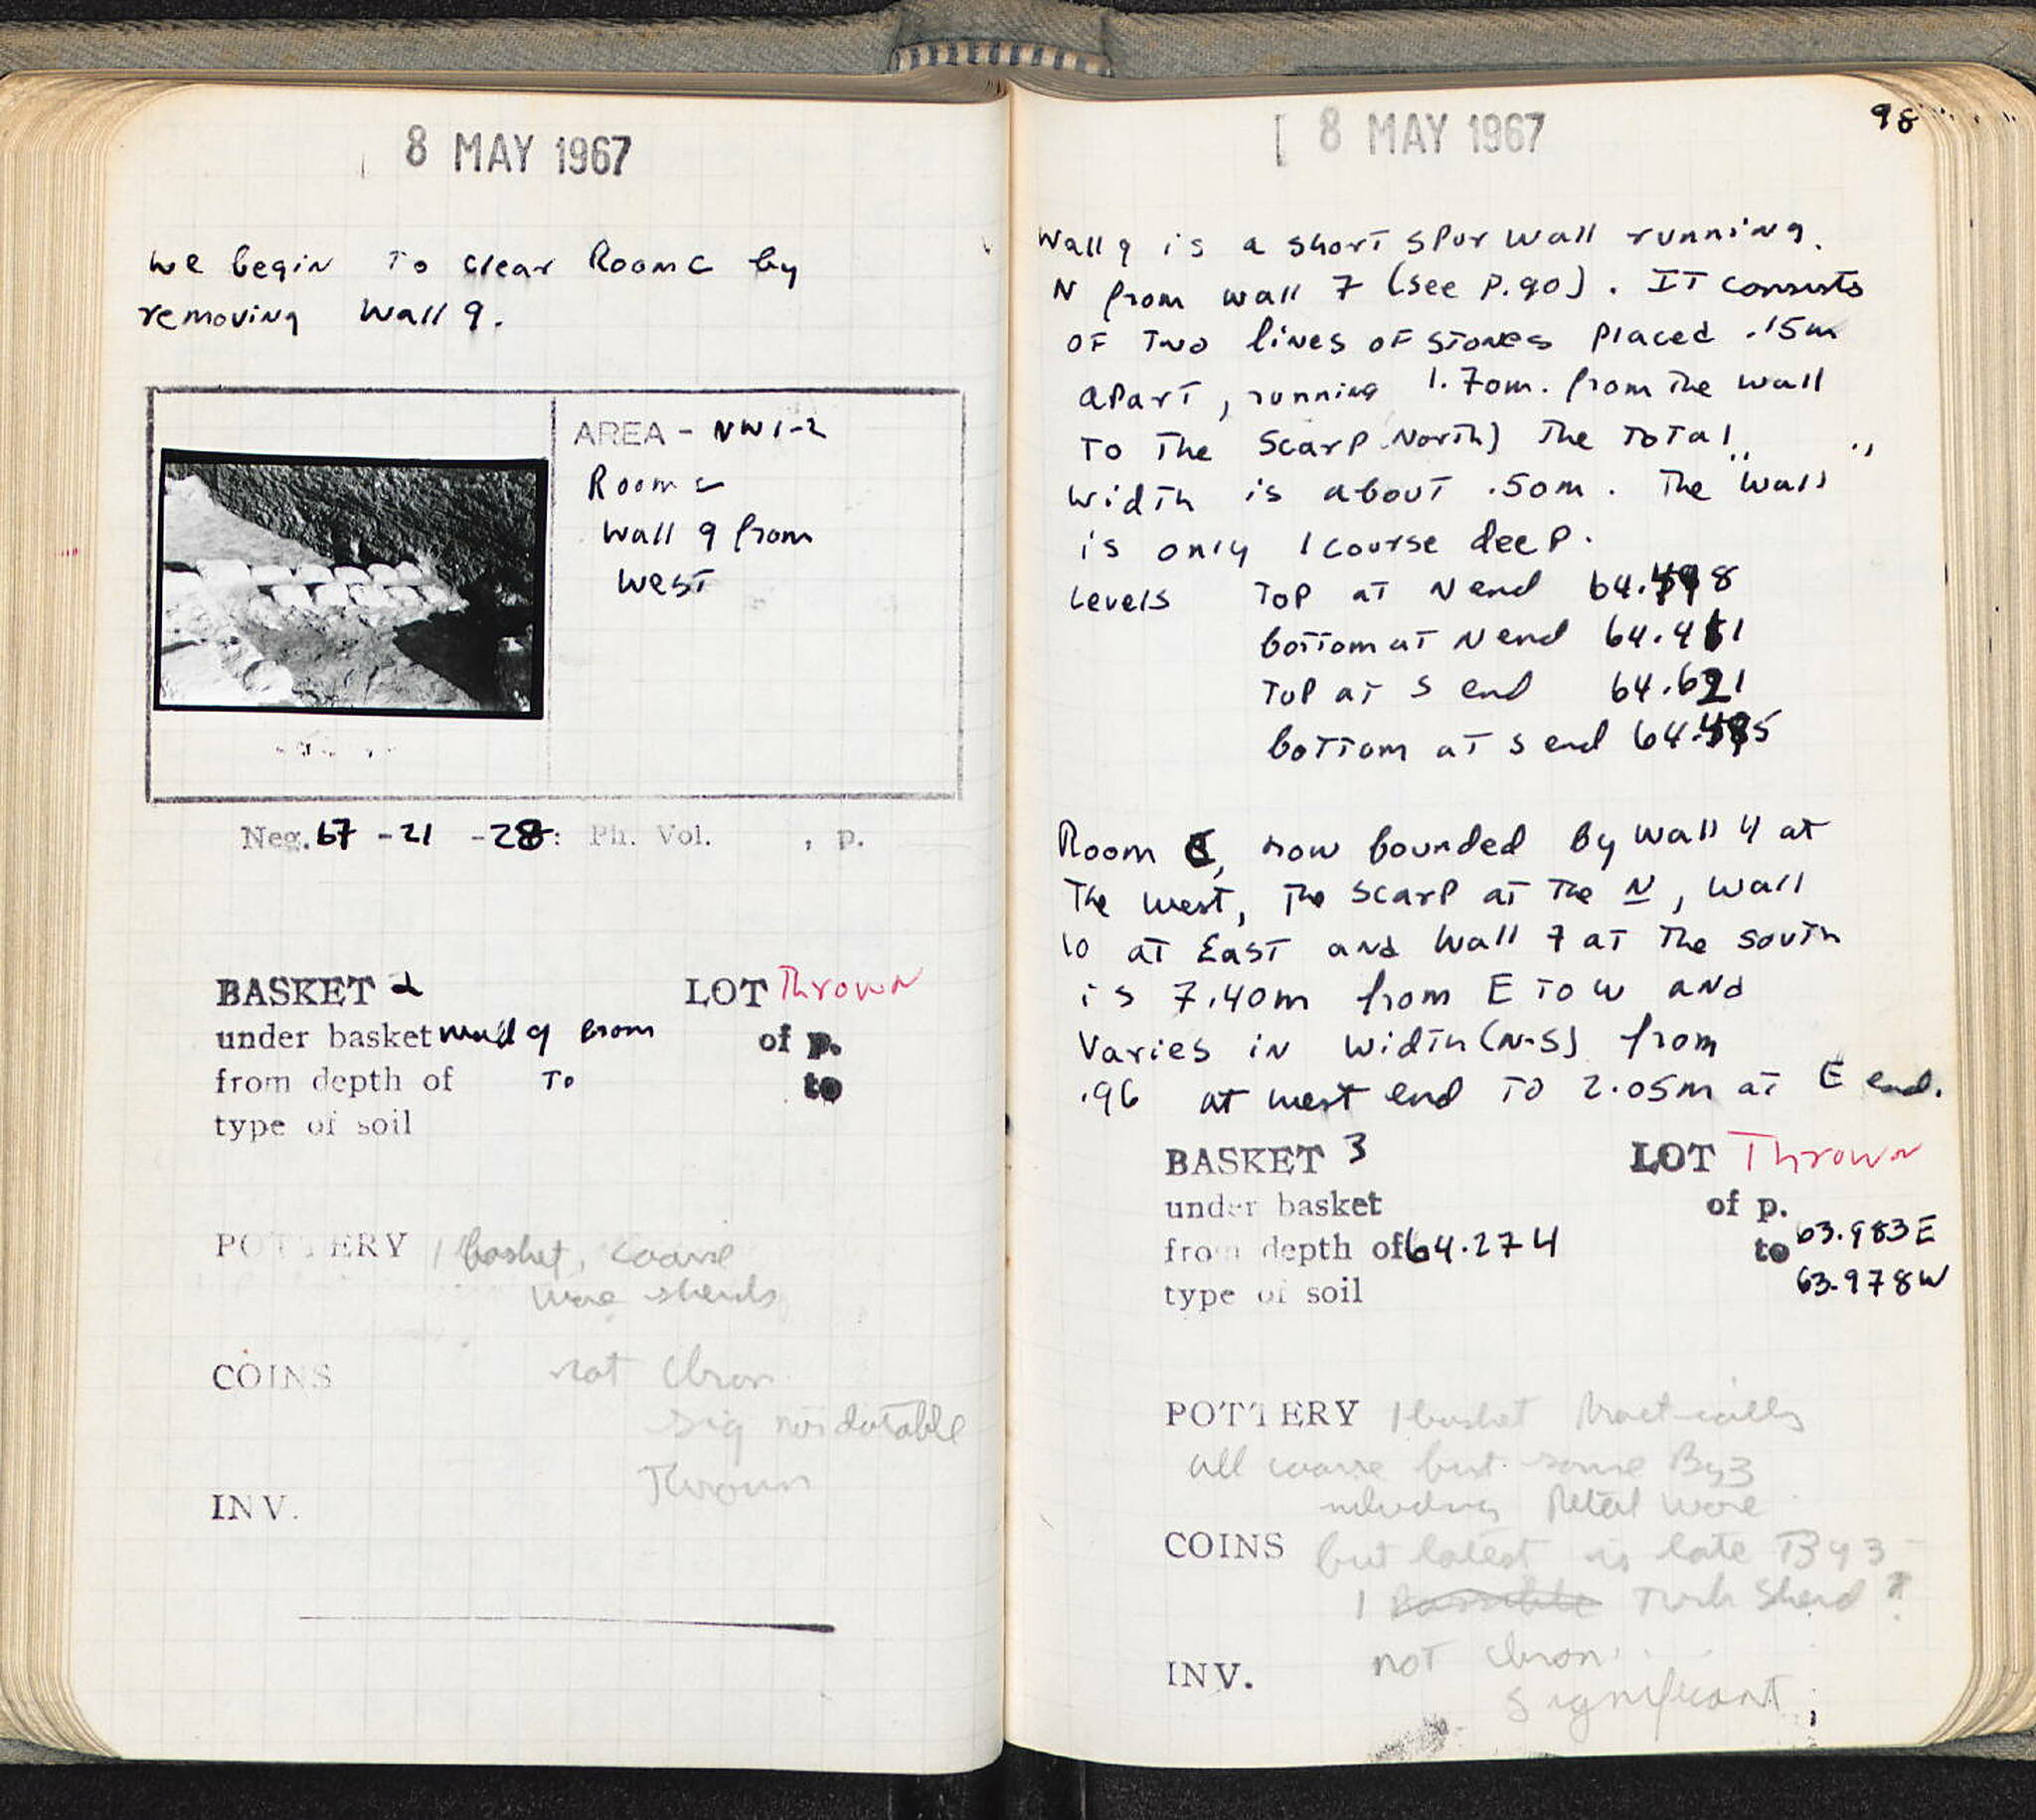 8 MAY 1967
We begin to clear Room C by
removing Wall 9.
AREA - NW1-2
Room C
Wall 9 from
West
Neg. 67 - 21 - 28: Ph. Vol. , p.
BASKET 2 LOT Thrown
under basket wall 9 from of p.
from depth of To to
type of soil
POTTERY 1 basket, coarse
ware sherds
COINS not chron
sig nor datable
Thrown
INV.
8 MAY 1967
98
Wall 9 is a short spur wall running
N from wall 7 (see p.90). It consists
of two lines of stones placed .15m
apart, running 1.70m. from the wall
to the scarp North) The total
width is about .50m. The wall
is only 1 course deep.
Levels Top at N end 64.498
bottom at N end 64.411
Top at S end 64.621
bottom at S end 64.495
Room C, now bounded by wall 4 at
The west, The scarp at the N, wall
10 at East and Wall 7 at the south
is 7.40m from E to W and
Varies in width (N-S) from
.96 at west end to 2.05m at E end.
BASKET 3 LOT Thrown
under basket of p.
from depth of 64.274 to 63.983 E
63.978 W
type of soil
POTTERY 1 basket Practically
all coarse but some Byz
including Petal ware
COINS but latest is late Byz -
1 possible Turk Sherd ?
not chron.
INV.
significant